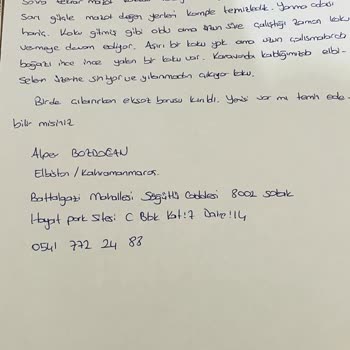 Sarı güsle mazot değen yerleri komple temizledik. Yanma odası
hariç. Koku gitmiş gibi oldu ama uzun süre çalıştığı zaman koku
vermeye devam ediyor. Aşırı bir koku yok ama uzun çalışmalarda
boğazı ince ince yakan bir koku var. Karavanda kaldığımızda elbi-
selerin üzerine siniyor ve yıkanmadan çıkmıyor koku.
Birde çıkarırken eksoz borusu kırıldı. Yenisi var mı temin ede-
bilir misiniz
Alper BOZDOĞAN
Elbistan / Kahramanmaraş
Battalgazi Mahallesi Söğütlü Caddesi 8002 sokak
Hayat park sitesi C Blok Kat:7 Daire:14
0541 772 24 88